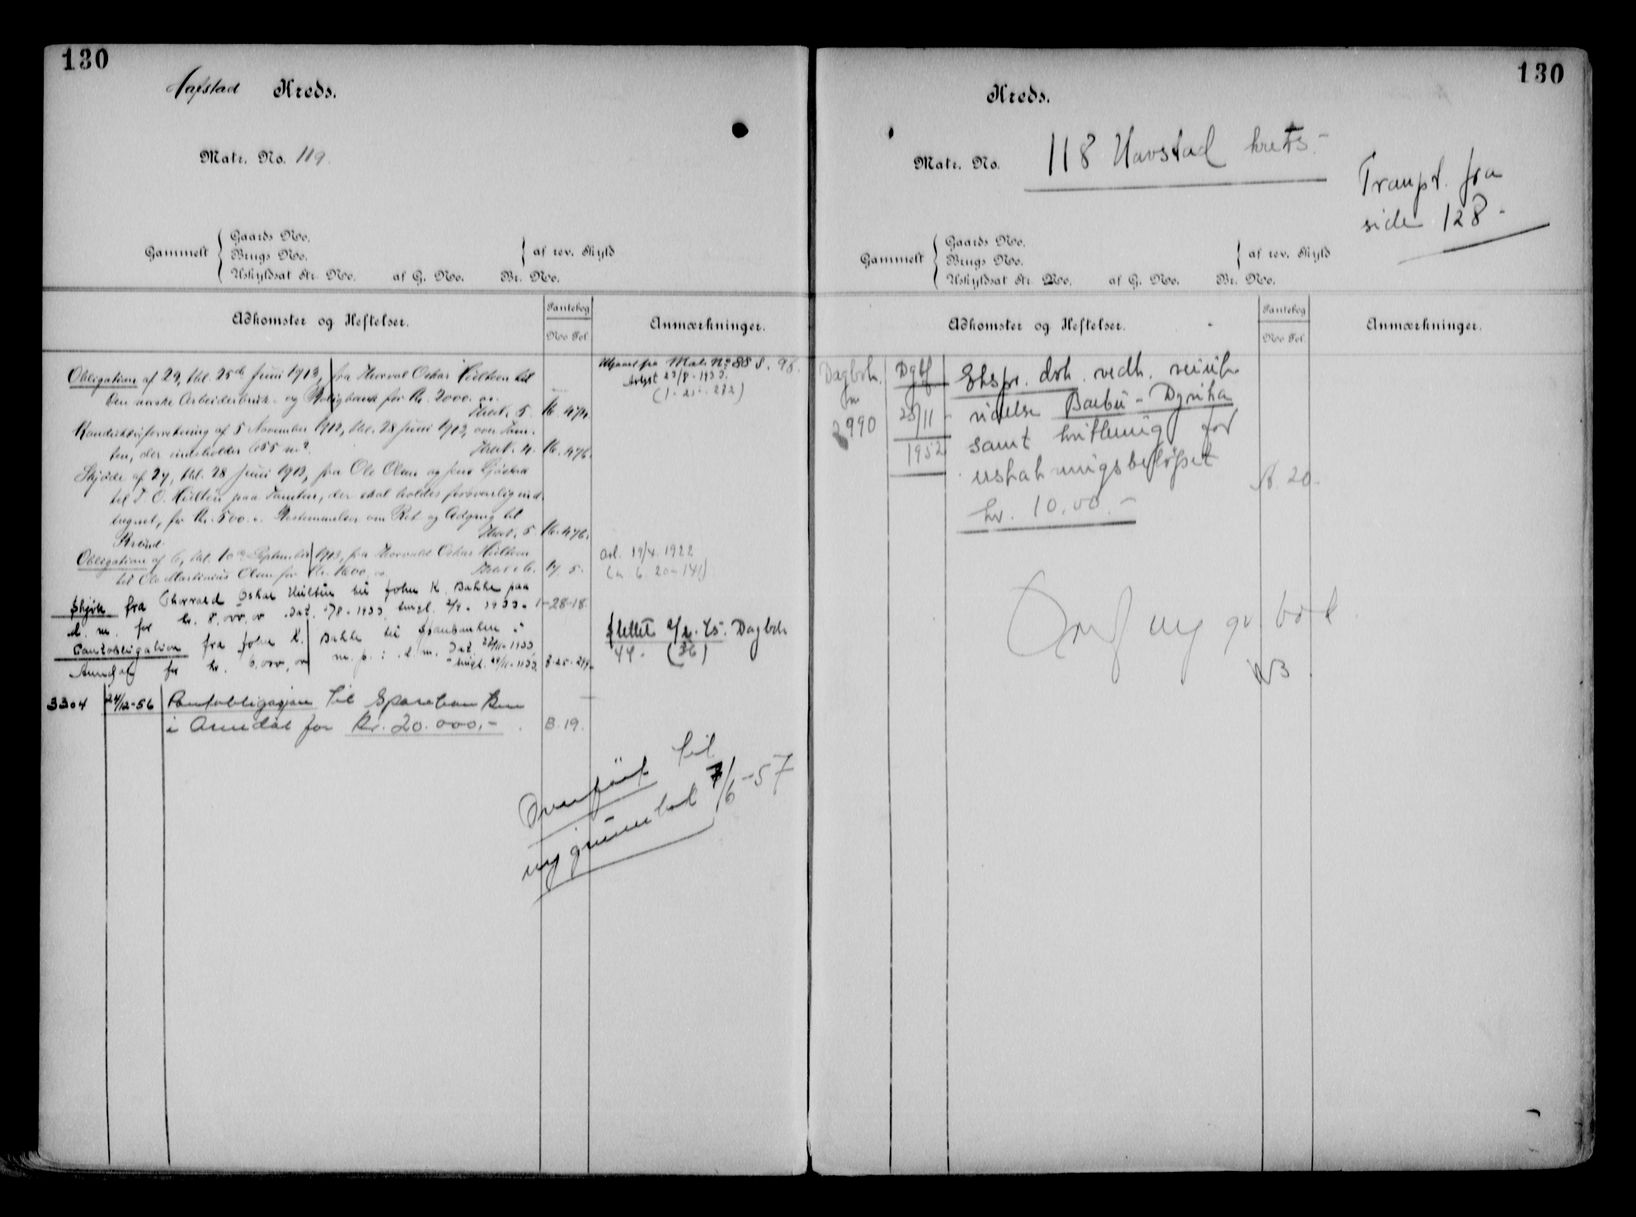 130
Hafstad Kreds.
Matr. No. 119.
Gammelt
Gaards No.
Brugs No.
Uskyldsat Str. No. af G. No. Br. No.
af rev. Skyld
Adkomster og Heftelser.
Pantebog
No Fol.
Anmærkninger.
Obligation af 29, thl. 25de Juni 1912, fra Thorval Oskar Hultin til
Den norske Arbeiderbruk- og Boligbank for Kr. 2000.
Hvat. 5. 16. 474.
Mat. No 88 S. 98.
Avlyst 23/8-1933.
(1-21-272)
af 5 November 1912, thl. 28 Juni 1912, over
der indeholder 655 m².
Hvat. 4. 16. 476.
Skjøde af 27, thl. 28 Juni 1912, fra Ole Olsen og
til T. O. Hultin paa Tomten, der skal holdes forsvarlig ind-
hegnet, for Kr. 500. Bestemmelse om Ret og Adgang til
Strand.
Hvat. 5. 16. 476.
Obligation af 6, thl. 10 September 1912, fra Thorvald Oskar Hultin
til Ole Martinius Olsen for Kr. 1000.
17. 5.
Avl. 19/4. 1922
(L. 6. 20-141)
Skjøte fra Thorvald Oskar Hultin til John K. Bakke paa
d. m. for kr. 8.000,00 Dat. 1/8-1933 tingl. 2/9-1933. 1-28-18
Pantobligation fra John K. Bakke til Sparebanken i
Arendal for kr. 6.000,00 m. p. i d. m. Dat. 22/11-1933
tingl. 24/11-1933 8-25-219.
Slettet 2/2-45. Dagbok
44. (36)
3304 24/12-56 Pantobligasjon til Sparebanken
i Arendal for Kr. 20.000,- B.19.
Overført til
ny grunnbok 7/6-57
130
Kreds.
Matr. No. 118 Havstad krets.-
Transp. fra
side 128.-
Gammelt
Gaards No.
Brugs No.
Uskyldsat Str. No. af G. No. Br. No.
af rev. Skyld
Adkomster og Heftelser.
Pantebog
No Fol.
Anmærkninger.
Dagbok.
nr
2990
Dgbf
25/11-
1952
Ekspr. dok. vedk.
Barbu - Dyvika
samt kvittering for
kr. 10.00.-
A. 20.
Overf ny gr. bok